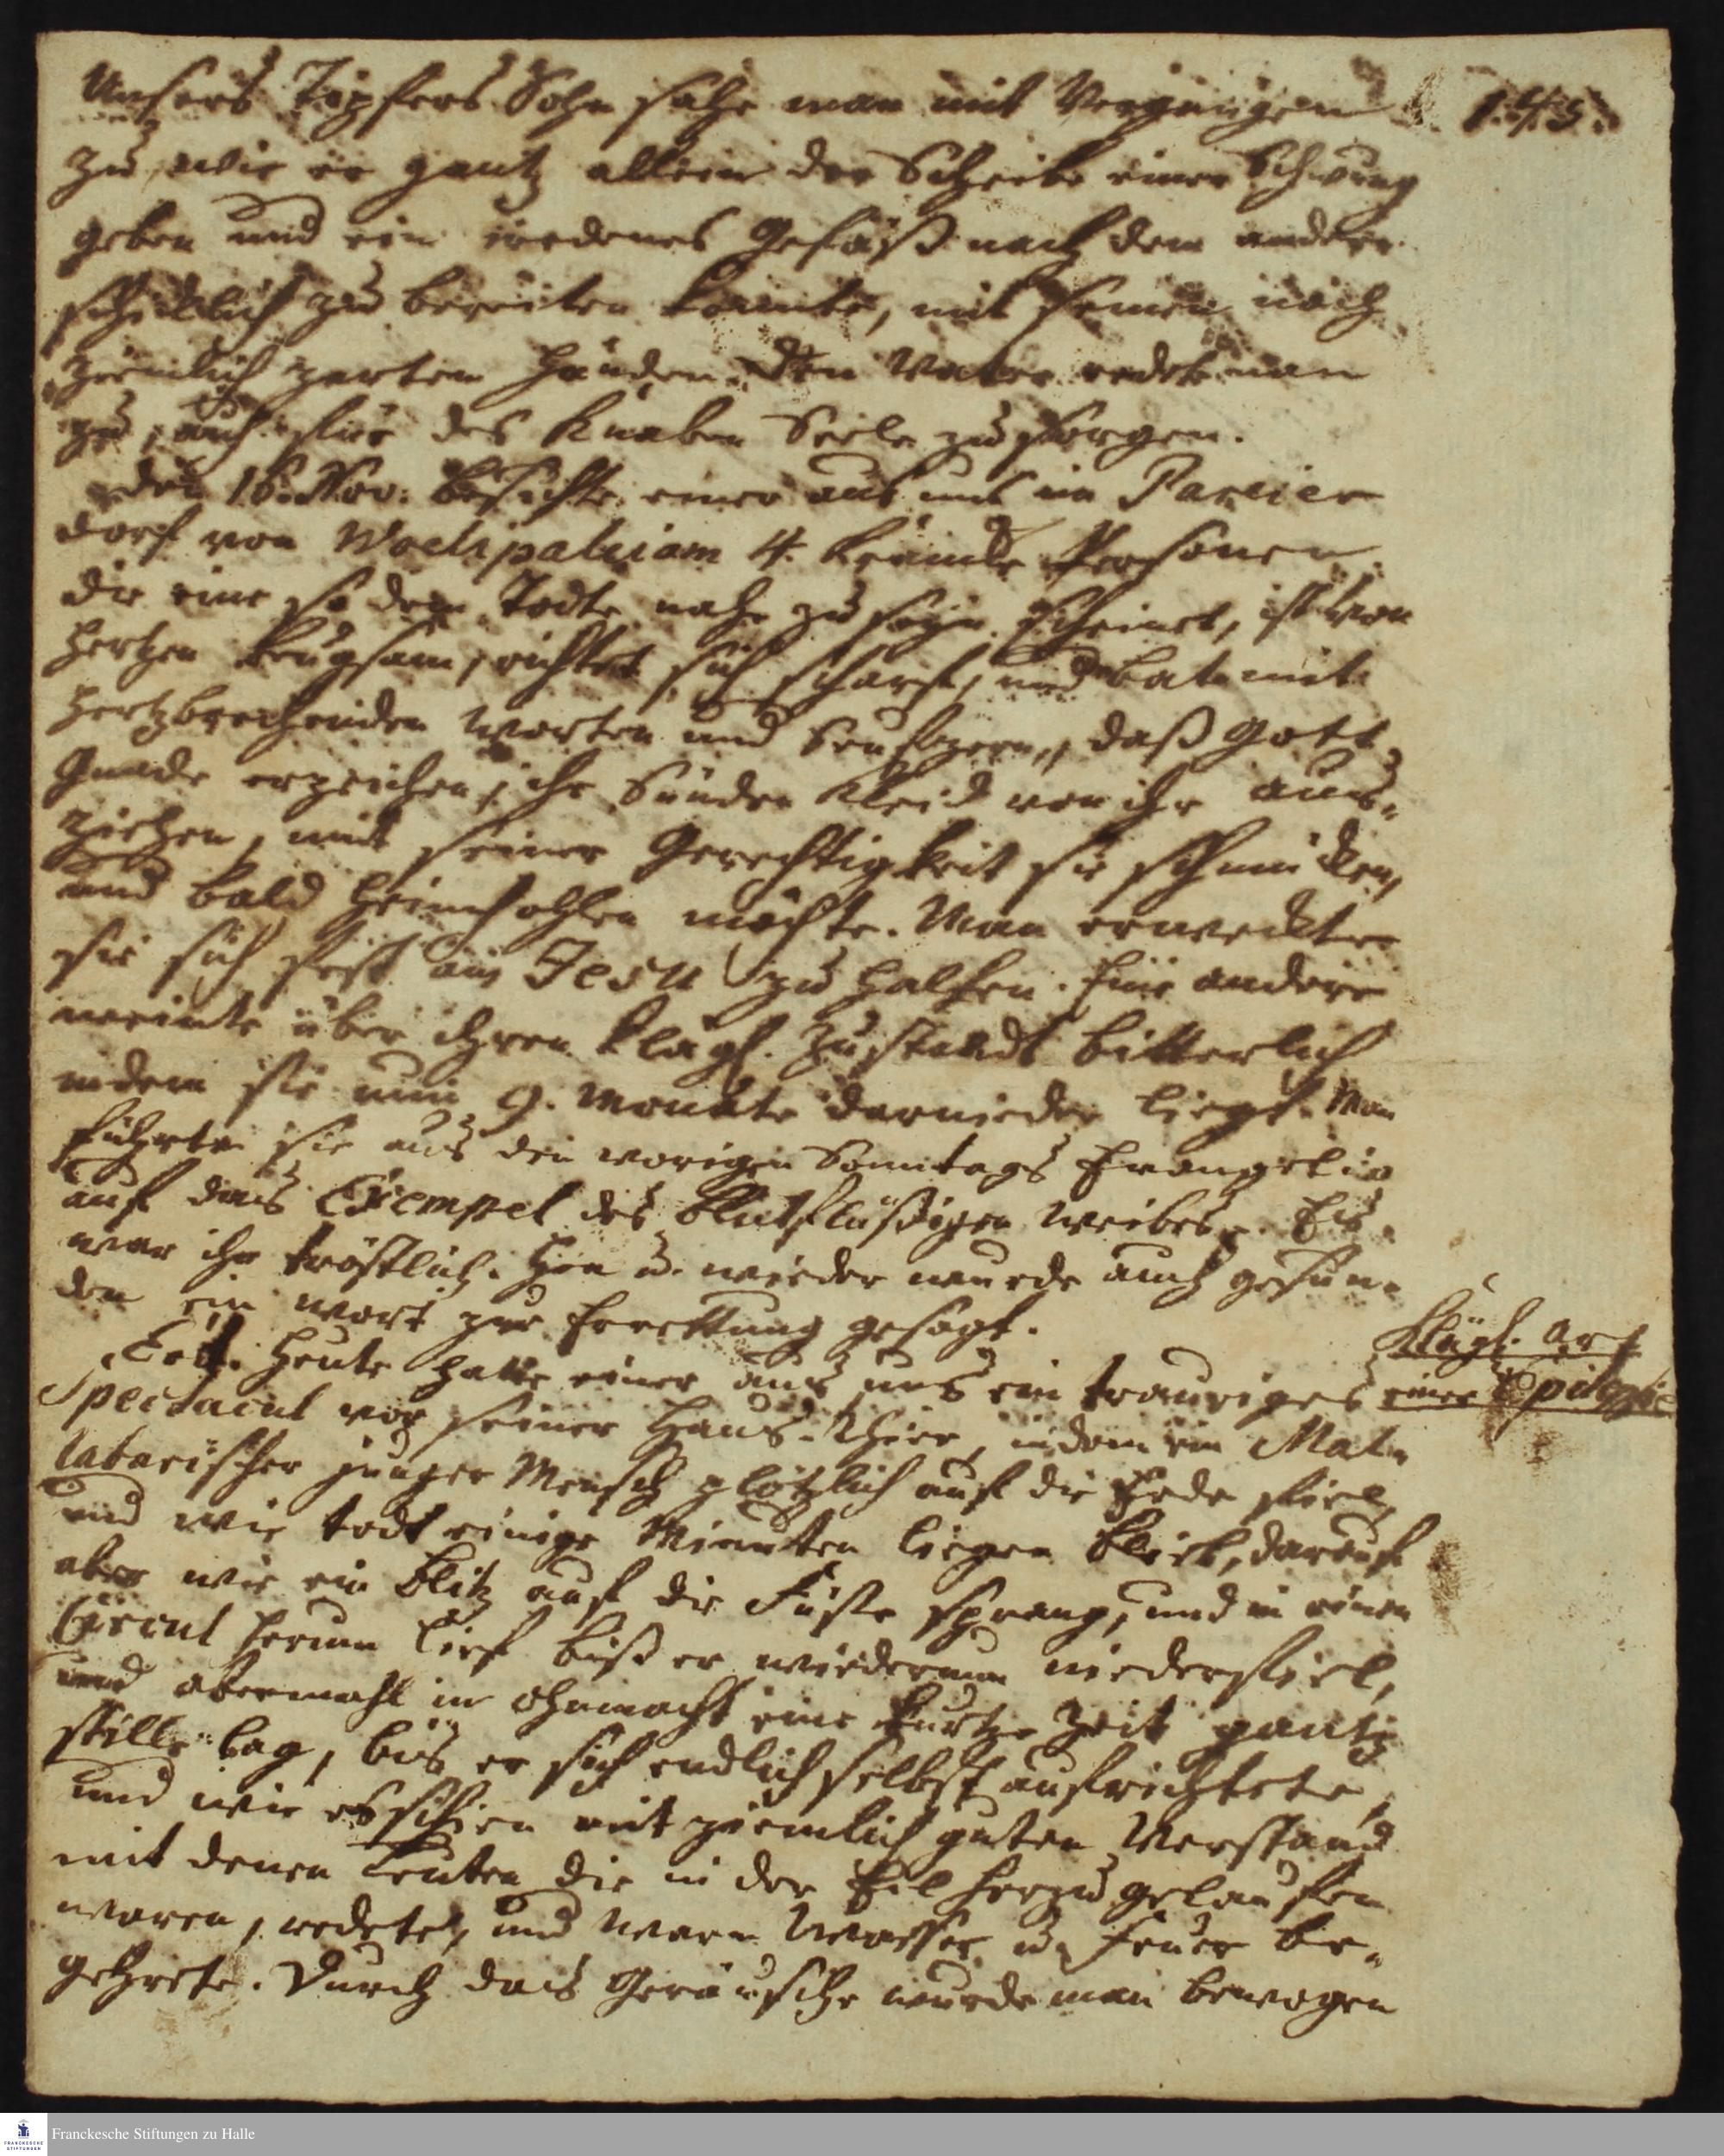 145.
Unsers Töpfers Sohn sahe man mit Vergnügen
zu, wie er gantz allein der Scheibe einen Schwung
geben und ein irrdenes Gefäß nach dem andern
schicklich zu bereiten konnte, mit seinen noch
ziemlich zarten Händen. Den Vater redete man
zu, auch für des Knaben Seele zu sorgen.
den 16. Nov. besuchte einer aus uns im Pareier
dorf von Woelipaleiam 4. krancke Personen.
die eine so dem Todte nahe zu seyn scheinet, ist von
Hertzen beugsam, richtet sich scharf, und bat mit
Hertzbrechenden Worten und Seufzern, daß Gott
Gnade erzeichen, ihr Sünden Kleid von ihr aus-
ziehen, mit seiner Gerechtigkeit sie schmücken,
und bald heimhohlen möchte. Man erweckte
sie sich fest an Jesu zu halten. Eine andere
weinte über ihren klägl. Zustandt bitterlich
indem sie nun 9. Monate darnieder liegt. Man
führte sie aus den vorigen Sonntags Evangelio
auf das Exempel des blutflüßigen Weibes. Es
war ihr tröstlich. Hin u. wieder wurde auch gesun-
den ein Wort zur Errettung gesagt.
Eod. Heute hatte einer aus uns ein trauriges
Klägl. Art
einer Epilepsie
Spectacul vor seiner Haus-Thüre, indem ein Mala-
labarischer junger Mensch plötzlich auf die Erde fiel,
und wie todt einige Minuten liegen blieb, darauf
aber wie ein Blitz auf die Füße sprang, und in einen
Circul herum lief biß er wiederum niederfiel,
und abermahl in Ohnmacht eine kurtze Zeit gantz
stille lag, bis er sich endlich selbst aufrichtete,
und wie es schien mit ziemlich guten Verstand
mit denen Leuten die in der Eil herzu gelaufen
waren, redete, und warm Wasser u. Feuer be-
gehrete. Durch das Geräusche wurde man bewogen
Franckesche Stiftungen zu Halle